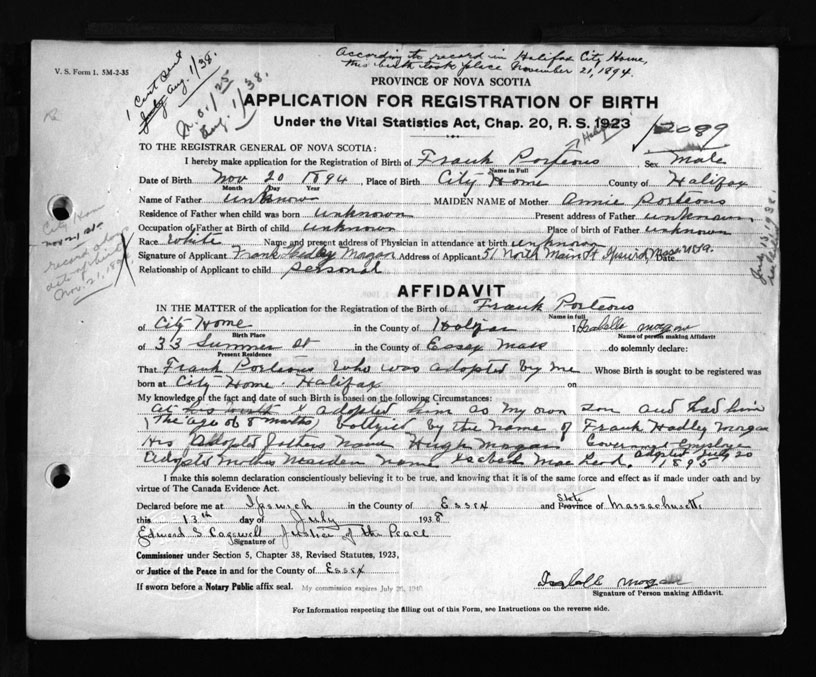 According to record in Halifax City Home,
this birth took place November 21, 1894.
V. S. Form 1. 5M-2-35
1 Cert Sent
Aug. 1/38.
Aug. 1/38.
PROVINCE OF NOVA SCOTIA
APPLICATION FOR REGISTRATION OF BIRTH
Under the Vital Statistics Act, Chap. 20, R. S. 1923
2089
TO THE REGISTRAR GENERAL OF NOVA SCOTIA:
I hereby make application for the Registration of Birth of Frank Porteous Sex Male
Name in Full
Date of Birth Nov 20 1894, Place of Birth City Home County of Halifax
Month Day Year
Name of Father unknown MAIDEN NAME of Mother Annie Porteous
Residence of Father when child was born unknown Present address of Father unknown
Occupation of Father at Birth of child unknown Place of birth of Father unknown
Race White Name and present address of Physician in attendance at birth unknown
Signature of Applicant Frank Hadley Morgan Address of Applicant 51 North Main St Ipswich Mass U.S.A. Date
Relationship of Applicant to child personal
City Home
record
date of birth
Nov. 21, 1894
July 15, 1938.
AFFIDAVIT
IN THE MATTER of the application for the Registration of the Birth of Frank Porteous
Name in full
of City Home in the County of Halifax I Isabelle Morgan
Birth Place Name of person making Affidavit
of 33 Summer St in the County of Essex Mass do solemnly declare:
Present Residence
That Frank Porteous who was adopted by me. Whose Birth is sought to be registered was
born at City Home. Halifax on
My knowledge of the fact and date of such Birth is based on the following Circumstances:
At his birth I adopted him as my own son and had him
(The age of 8 months) by the name of Frank Hadley Morgan
His Adopted Fathers Name Hugh Morgan Government Employee
Adopted Mother Maiden Name Isabell MacLeod. adopted July 20
1895
I make this solemn declaration conscientiously believing it to be true, and knowing that it is of the same force and effect as if made under oath and by
virtue of The Canada Evidence Act.
Declared before me at Ipswich in the County of Essex and State Province of Massachusetts
this 13th day of July 1938
Edward S Cogswell Justice of the Peace
Signature of
Commissioner under Section 5, Chapter 38, Revised Statutes, 1923,
or Justice of the Peace in and for the County of Essex
If sworn before a Notary Public affix seal. My commission expires July 26, 1940
Isabelle Morgan
Signature of Person making Affidavit.
For Information respecting the filling out of this Form, see Instructions on the reverse side.